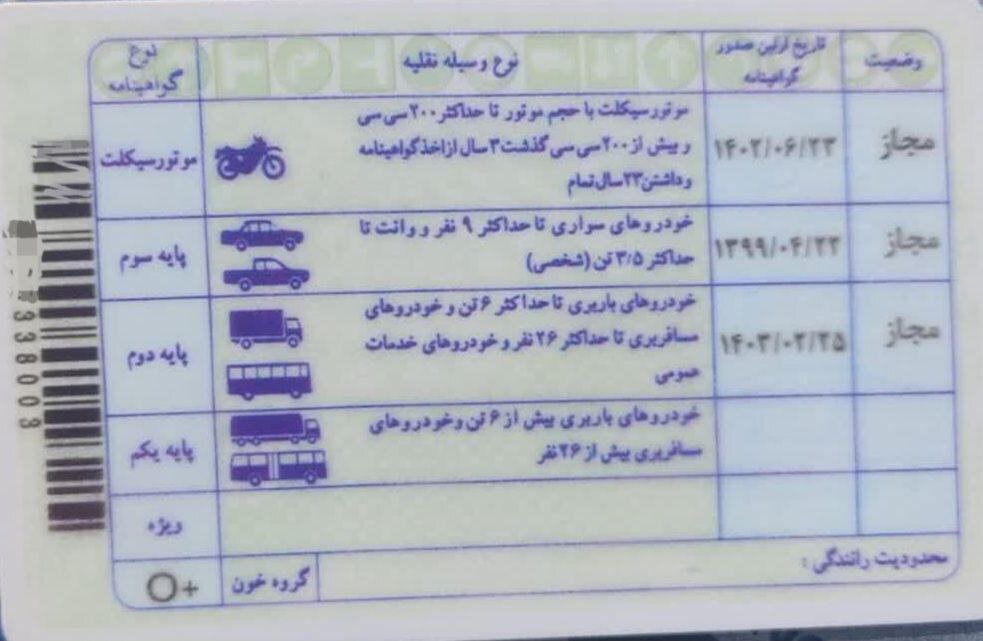 وضعیت
تاریخ اولین صدور
گواهینامه
نوع وسیله نقلیه
نوع
گواهینامه
مجاز
۱۴۰۲/۰۶/۲۳
موتورسیکلت با حجم موتور تا حداکثر ۲۰۰ سی سی
و بیش از ۲۰۰ سی سی گذشت ۳ سال از اخذ گواهینامه
و داشتن ۲۳ سال تمام
موتورسیکلت
مجاز
۱۳۹۹/۰۴/۲۲
خودروهای سواری تا حداکثر ۹ نفر و وانت تا
حداکثر ۳/۵ تن (شخصی)
پایه سوم
مجاز
۱۴۰۳/۰۲/۲۵
خودروهای باربری تا حداکثر ۶ تن و خودروهای
مسافربری تا حداکثر ۲۶ نفر و خودروهای خدمات
عمومی
پایه دوم
خودروهای باربری بیش از ۶ تن و خودروهای
مسافربری بیش از ۲۶ نفر
پایه یکم
ویژه
محدودیت رانندگی :
گروه خون
O+
338003